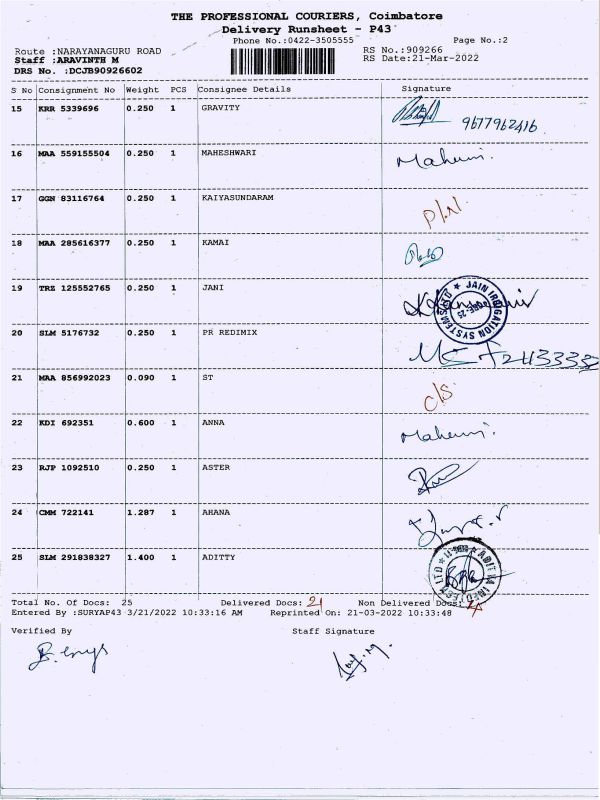 THE PROFESSIONAL COURIERS, Coimbatore
Delivery Runsheet - P43
Phone No.:0422-3505555 Page No.:2
Route :NARAYANAGURU ROAD RS No.:909266
Staff :ARAVINTH M RS Date:21-Mar-2022
DRS No. :DCJB90926602
S No Consignment No Weight PCS Consignee Details Signature
15 KRR 5339696 0.250 1 GRAVITY
9677962416
16 MAA 559155504 0.250 1 MAHESHWARI
17 GGN 83116764 0.250 1 KAIYASUNDARAM
18 MAA 285616377 0.250 1 KAMAI
19 TRZ 125552765 0.250 1 JANI
JAIN IRRIGATION SYSTEMS LTD
20 SLM 5176732 0.250 1 PR REDIMIX
21 MAA 856992023 0.090 1 ST
C/S
22 KDI 692351 0.600 1 ANNA
23 RJP 1092510 0.250 1 ASTER
24 CMM 722141 1.287 1 AHANA
25 SLM 291838327 1.400 1 ADITTY
Total No. Of Docs: 25 Delivered Docs: 21 Non Delivered Docs: 4
Entered By :SURYAP43 3/21/2022 10:33:16 AM Reprinted On: 21-03-2022 10:33:48
Verified By Staff Signature